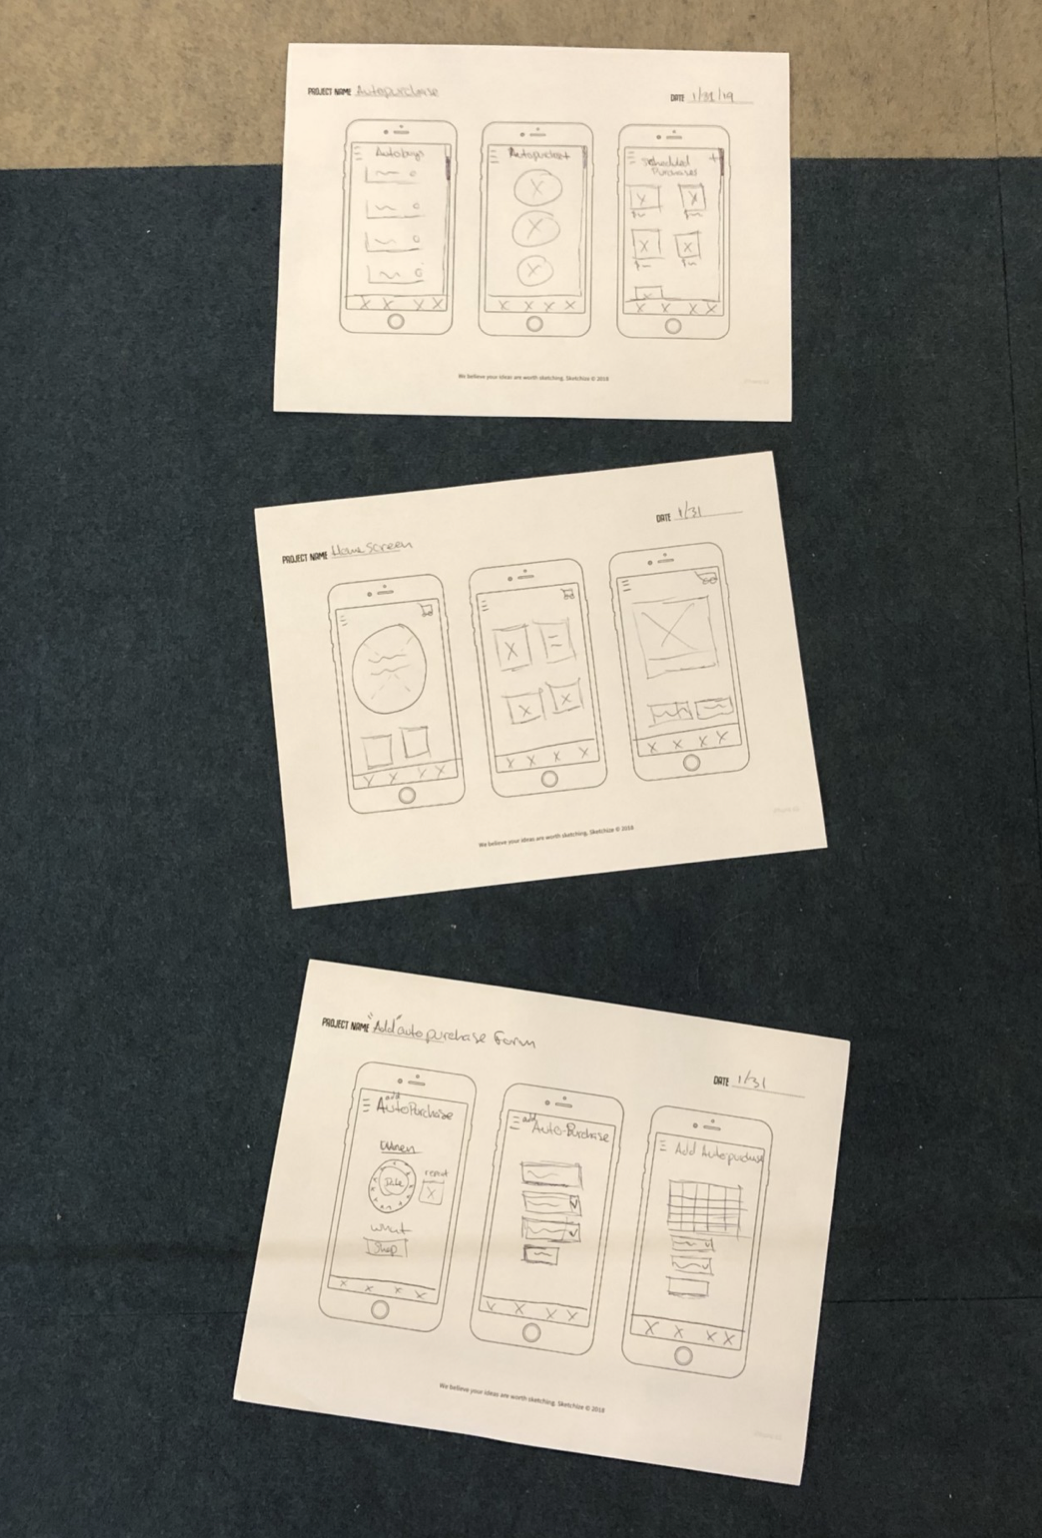 PROJECT NAME Autopurchase
DATE 1/31/19
Autobuys
Autopurchase
Scheduled
Purchases
We believe your ideas are worth sketching. Sketchize © 2018
PROJECT NAME Home Screen
DATE 1/31
We believe your ideas are worth sketching. Sketchize © 2018
PROJECT NAME "Add" autopurchase Form
DATE 1/31
add
AutoPurchase
When
Date
repeat
What
Shop
add
Auto-Purchase
Add Autopurchase
We believe your ideas are worth sketching. Sketchize © 2018